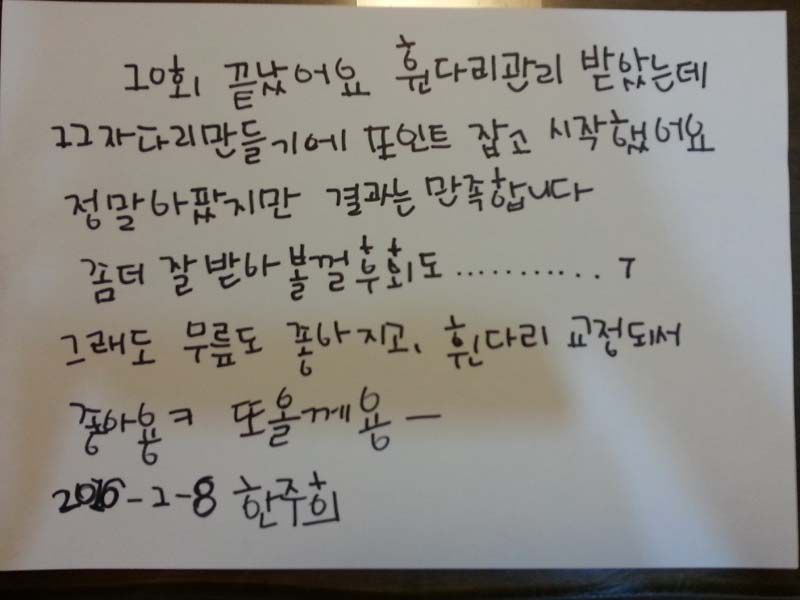 10회 끝났어요 휜다리관리 받았는데
11자다리만들기에 포인트 잡고 시작했어요
정말아팠지만 결과는 만족합니다
좀더 잘 받아 볼껄 후회도 ........... ㅜ
그래도 무릎도 좋아지고, 휜다리 교정되서
좋아용ㅋ 또올께용 ㅡ
2016-2-8 한주희